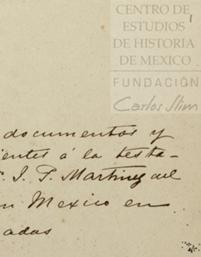 CENTRO DE
ESTUDIOS
DE HISTORIA
DE MEXICO
FUNDACIÓN
Carlos Slim
1
documentos y
ientes á la testa-
I. P. Martinez del
n Mexico en
adas